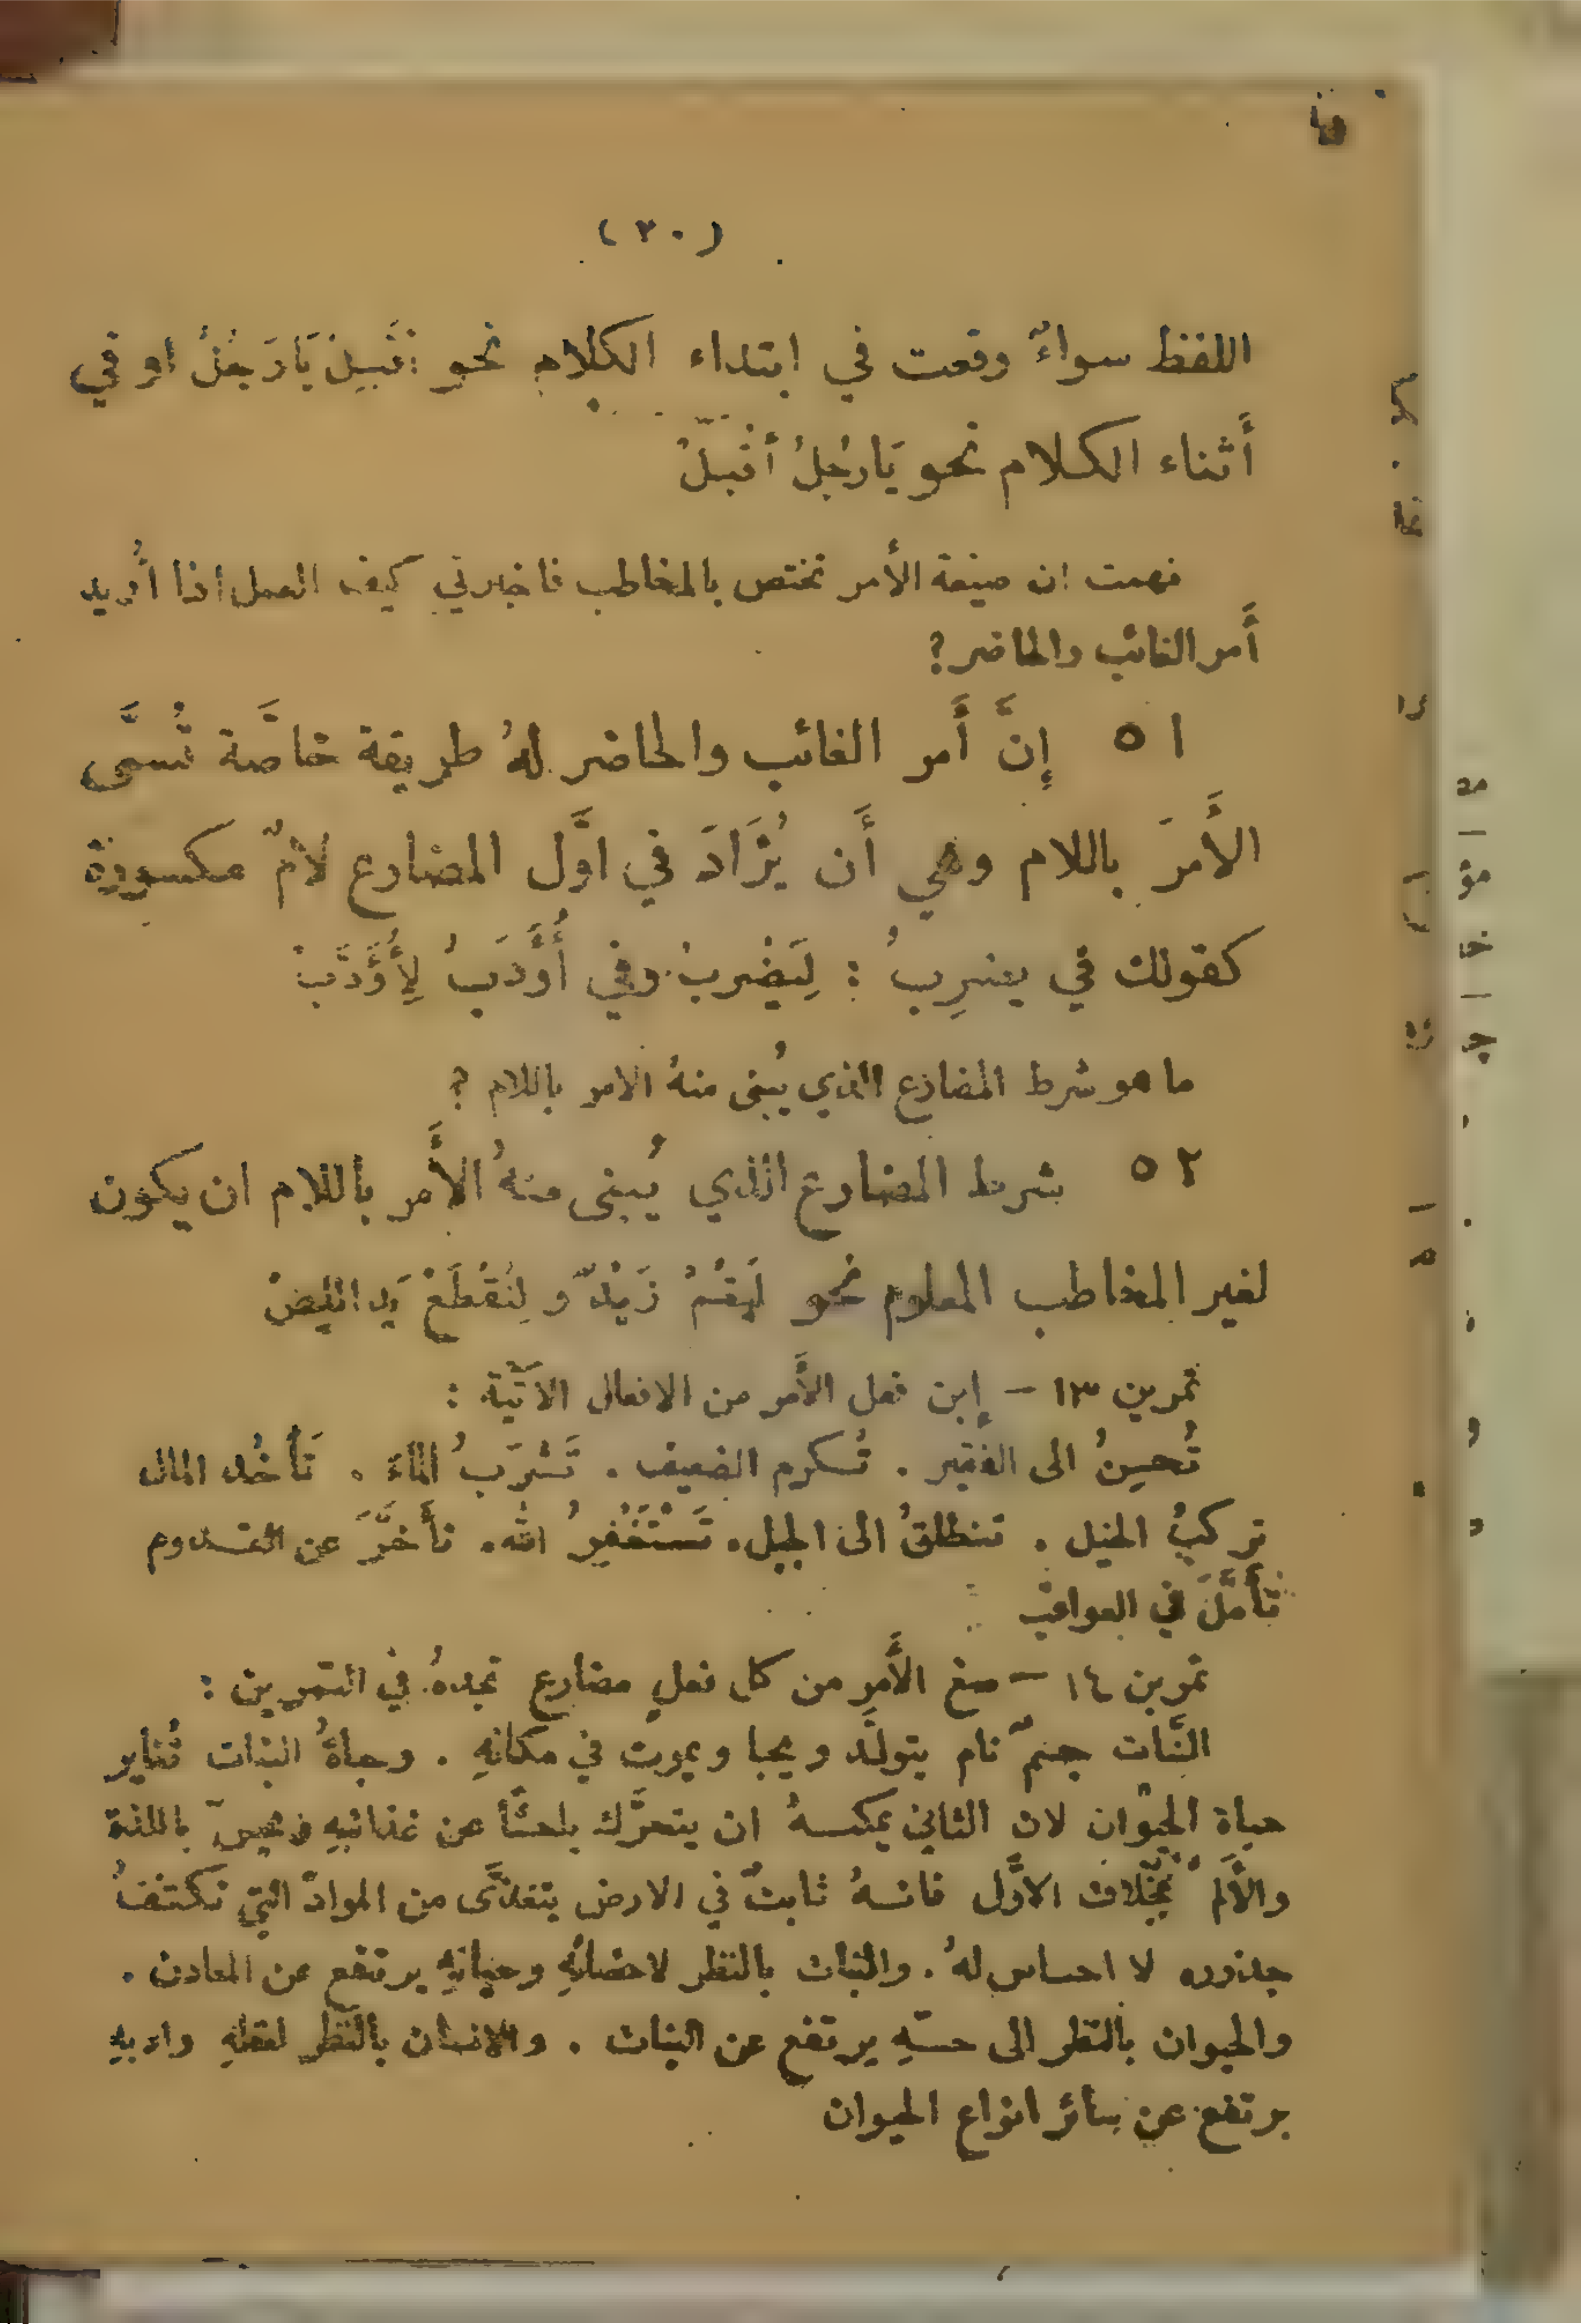 (٣٠)
اللفظ سواءٌ وقعت في ابتداء الكلام نحو أَقْبِلْ يَارَجُلُ او في
أَثناء الكلام نحو يَارَجُلُ أَقْبِلْ
فهمت ان صيغة الأمر تختص بالمخاطب فاخبرني كيف العمل اذا أُريد
أَمر الغائب والحاضر ؟
٥١ إِنَّ أَمر الغائب والحاضر لهُ طريقة خاصَّة تُسمَّى
الأَمرَ باللام وهي أَن يُزَادَ في اوَّل المضارع لامٌ مكسورة
كقولك في يضرِبُ : لِيَضْربْ وفي أُؤَدّبُ لِأُؤَدّبْ
ما هو شرط المضارع الذي يُبنى منهُ الامر باللام ؟
٥٢ شرط المضارع الذي يُبنى منهُ الأَمر باللام ان يكون
لغير المخاطب المعلوم نحو لِيَقُمْ زَيْدٌ و لِتُقْطَعْ يَد اللِّصّ
تمرين ١٣ – إِبن فعل الأَمر من الافعال الآتية :
تُحسِنُ الى الفقير . تُكرم الضعيف . تَشْرَبُ الماءَ . تَأخُذ المال
تركبُ الخيل . تنطلقُ الى الجبل . تَسْتَغْفِرُ الله . تأَخَّرَ عن القدوم
تأَمَّلَ في العواقب
تمرين ١٤ – صغ الأَمر من كل فعلٍ مضارع تجدهُ في التمرين :
النَّبات جسمٌ نامٍ يتولَّد ويحيا ويموت في مكانهِ . وحياةُ النبات تُغاير
حياة الحيوان لان الثاني يمكنهُ ان يتحرَّك باحثًا عن غذائهِ ويحسّ باللذة
والأَلم بخلاف الاوَّل فانهُ ثابتٌ في الارض يتغذَّى من الموادّ التي تكتنفُ
جذوره لا احساس لهُ . والنبات بالنظر لاعضائهِ وحياتهِ يرتفع عن المعادن .
والحيوان بالنظر الى حسّهِ يرتفع عن النبات . والانسان بالنَّظر لعقلهِ وادبهِ
يرتفع عن سائر انواع الحيوان